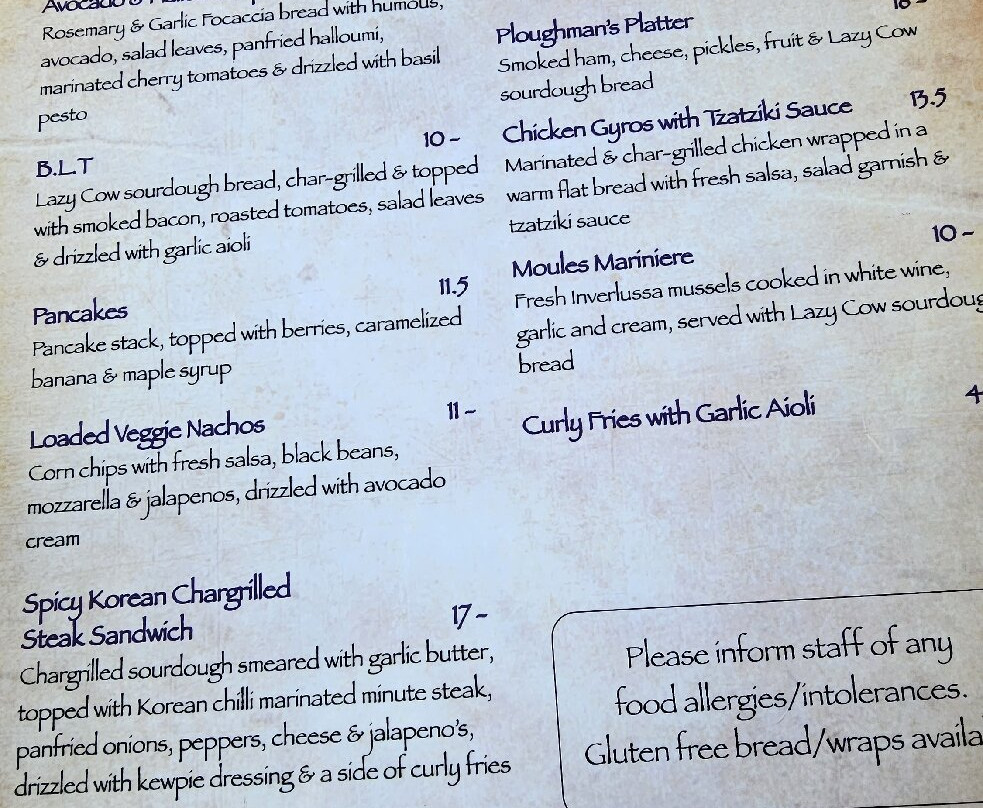 Rosemary & Garlic Focaccia bread with humous,
avocado, salad leaves, panfried halloumi,
marinated cherry tomatoes & drizzled with basil
pesto
B.L.T 10 -
Lazy Cow sourdough bread, char-grilled & topped
with smoked bacon, roasted tomatoes, salad leaves
& drizzled with garlic aioli
Pancakes 11.5
Pancake stack, topped with berries, caramelized
banana & maple syrup
Loaded Veggie Nachos 11 -
Corn chips with fresh salsa, black beans,
mozzarella & jalapenos, drizzled with avocado
cream
Spicy Korean Chargrilled
Steak Sandwich 17 -
Chargrilled sourdough smeared with garlic butter,
topped with Korean chilli marinated minute steak,
panfried onions, peppers, cheese & jalapeno's,
drizzled with kewpie dressing & a side of curly fries
Ploughman's Platter
Smoked ham, cheese, pickles, fruit & Lazy Cow
sourdough bread
Chicken Gyros with Tzatziki Sauce 13.5
Marinated & char-grilled chicken wrapped in a
warm flat bread with fresh salsa, salad garnish &
tzatziki sauce
Moules Mariniere 10 -
Fresh Inverlussa mussels cooked in white wine,
garlic and cream, served with Lazy Cow sourdoug
bread
Curly Fries with Garlic Aioli 4
Please inform staff of any
food allergies/intolerances.
Gluten free bread/wraps availa